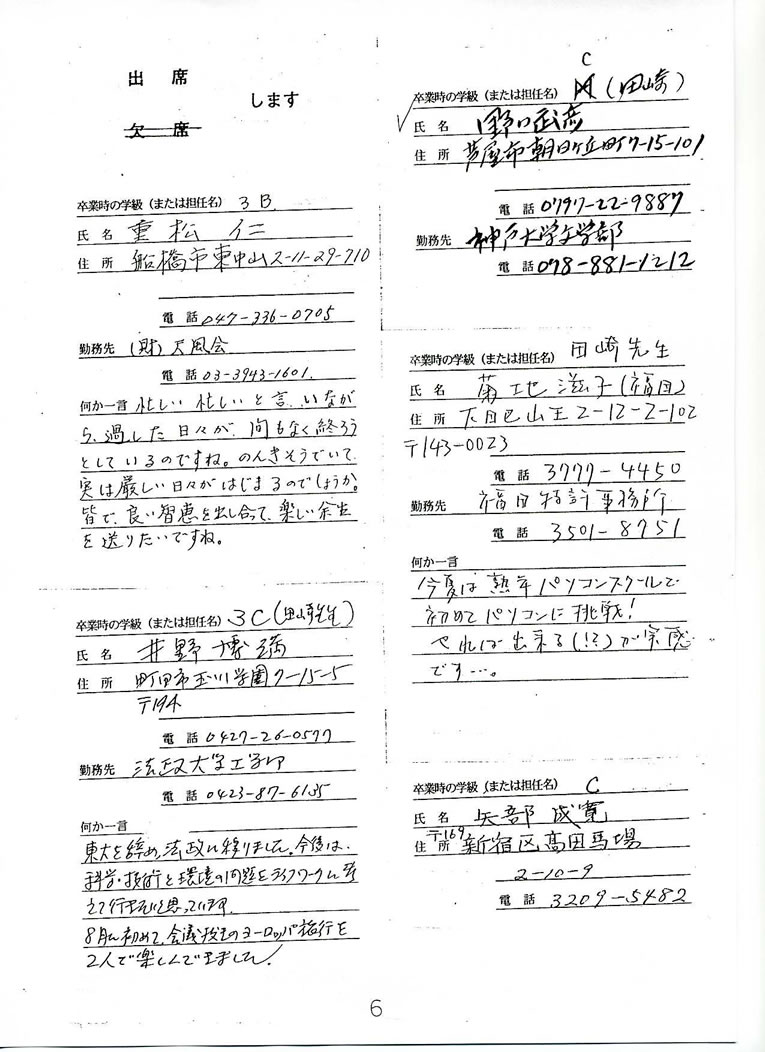 出 席
します
欠 席
卒業時の学級(または担任名) 3B.
氏 名 重松 仁
住 所 船橋市東中山2-11-29-710
電 話 047-336-0705
勤務先 (財)天風会
電 話 03-3943-1601.
何か一言 忙しい忙しいと言いなが
ら、過した日々が、間もなく終ろう
としているのですね。のんきそうでいて、
実は厳しい日々がはじまるのでしょうか。
皆で、良い智恵を出し合って、楽しい余生
を送りたいですね。
卒業時の学級(または担任名) 3C(田崎先生)
氏 名 井野博満
住 所 町田市玉川学園7-15-5
〒194
電 話 0427-26-0577
勤務先 法政大学工学部
電 話 0423-87-6135
何か一言
東大を辞め、法政に移りました。今後は、
科学・技術と環境の問題をライフワークに考
えて行きたいと思っています。
8月に初めて、会議抜きのヨーロッパ旅行を
2人で楽しんできました!
C
卒業時の学級(または担任名) (田崎)
氏 名 野口武彦
住 所 芦屋市朝日ケ丘町7-15-101
電 話 0797-22-9887
勤務先 神戸大学文学部
電 話 078-881-1212
卒業時の学級(または担任名) 田崎先生
氏 名 菊地滋子(福田)
住 所 大田区山王2-12-2-102
〒143-0023
電 話 3777-4450
勤務先 福田特許事務所
電 話 3501-8751
何か一言
今夏は熟年パソコンスクールで
初めてパソコンに挑戦!
やれば出来る(!?)が実感
です…。
卒業時の学級(または担任名) C
氏 名 矢部成寛
〒169
住 所 新宿区高田馬場
2-10-9
電 話 3209-5482
6